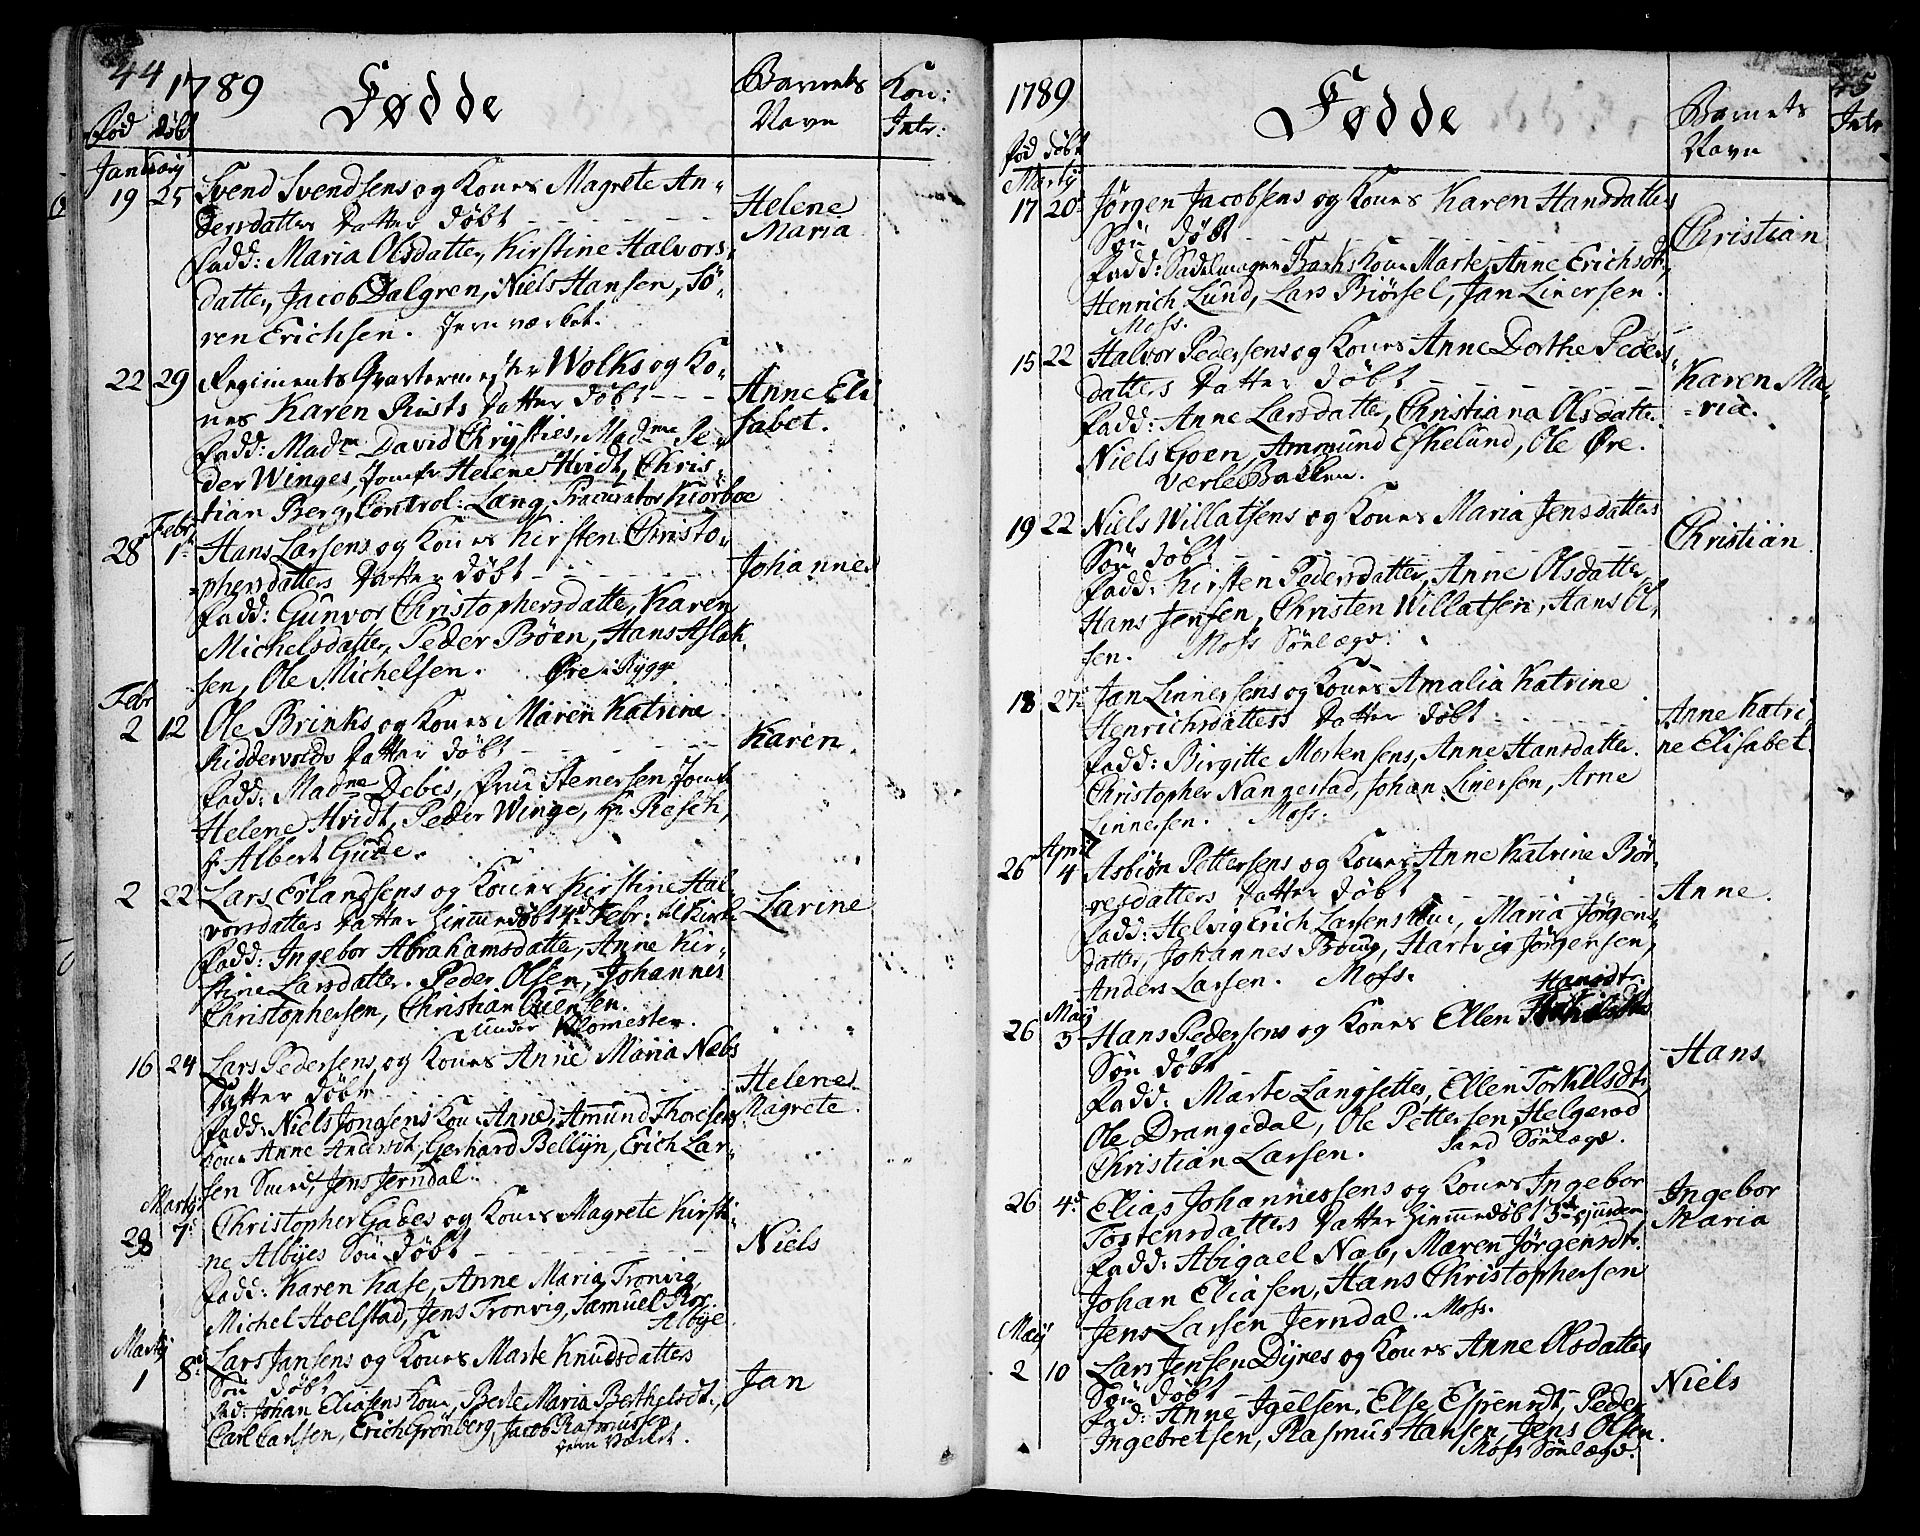 44 1789 Fødde Barnets Navn Kon: Intr:
fød døbt
January
19 25 Svend Svendsens og Kones Magrete An-
dersdatters Datter døbt Helene
Fadd: Maria Olsdatter, Kirstine Halvors- Maria
datter, Jacob Dalgren, Niels Hansen, Sö-
ren Erichsen. Jernværket.
22 29 Regiments Qvartermester Wolks og Ko-
nes Karen Rusts Datter døbt Anne Eli
Fadd: Madme David Chrysties, Madme Pe- sabet.
der Winges, Jomfr Helene Hvidt, Chris-
tian Berg, Control: Lang, Procurator Kiorboe
Febr
28 1 Hans Larsens og Kones Kirsten Christo-
phersdatters Datter døbt Johanne
Fadd: Gunvor Christophersdatter, Karen
Michelsdatter, Peder Böen, Hans Aslak-
sen, Ole Michelsen. Øre i Rygge
Febr
2 12 Ole Brinks og Kones Maren Katrine
Riddervolds Datter døbt Karen
Fadd: Madme Debes, Frue Stenersen, Jomfr
Helene Hvidt, Peder Winge, Hr Resch,
Hr Albert Gude.
2 22 Lars Erlandsens og Kones Kirstine Hal-
vorsdatters Datter hiemmedøbt 4d Febr: til Kirke Larine
Fadd: Ingebor Abrahamsdatter, Anne Kir-
stine Larsdatter. Peder Olsen, Johannes
Christophersen, Christian
under Klomesten.
16 24 Lars Pedersens og Kones Anne Maria Næbs
Datter døbt Helene
Fadd: Niels Jongsens Kone Anne, Amund Thoresens Magrete
Kone Anne Andersdt, Gerhard Bellyn, Erich Lar-
sen Smed, Jens Jerndal.
Martij
28 7d Christopher Gades og Kones Magrete Kirsti-
ne Albyes Søn døbt Niels
Fadd: Karen Kase, Anne Maria Tronvig,
Michel Hoelstad, Jens Tronvig, Samuel Ros.
Albye
Martij
1 8 Lars Jansens og Kones Marte Knudsdatters
Søn døbt Jan
Fad: Johan Eliasens Kone, Berte Maria Berthelsdt.,
Carl Carlsen, Erich Grönberg, Jacob Rasmussen
Jern Værket.
1789 Fødde Barnets Navn Intr 45
fød døbt
Martij
17 20 Jørgen Jacobsens og Kones Karen Hansdatters
Søn døbt Christian
Fadd: Sadelmager Barks Kone Marte, Anne Erichsdt,
Henrich Lund, Lars Biørsel, Jan Linersen.
Moss.
15 22 Halvor Pedersens og Kones Anne Dorthe Peders
datters Datter døbt Karen Ma-
Fadd: Anne Larsdatter, Christiana Olsdatter ria.
Niels Goen, Ammund Eskelund, Ole Øre.
Værle Bakken.
19 22 Niels Willatsens og Kones Maria Jensdatters
Søn døbt Christian
Fadd: Kirsten Pedersdatter, Anne Olsdatter
Hans Jensen, Christen Willatsen, Hans Ol-
sen. Moss Sönlægd.
18 27 Jan Linnersens og Kones Amalia Katrine
Henrichsdatters Datter døbt Anne Katri-
Fadd: Birgitte Mortensens, Anne Hansdatter. ne Elisabet.
Christopher Nannestad, Johan Linersen, Arne
Linnersen. Moss.
April
26 4 Asbiön Pettersens og Kones Anne Katrine Bör-
resdatters Datter døbt Anne.
Fadd: Helvig Erich Larsens Kone, Maria Jørgens-
datter, Johannes Boug, Hartvig Jørgensen,
Anders Larsen. Moss.
Hansdt.
Maij
26 3 Hans Pedersens og Kones Ellen
Søn døbt Hans
Fadd: Marte Langsettes, Ellen Torkildsdt,
Ole Drangedal, Ole Pettersen Helgerød
Christian Larsen. Sand Sönlægd.
26 4d Elias Johannessens og Kones Ingebor Ingebor
Tostensdatters Datter hiemmedøbt 3de Maria
Fadd: Abigael Næb, Maren Jørgensdt.
Johan Eliasen, Hans Christophersen
Jens Larsen Jerndal. Moss.
Maij
2 10 Lars Jensen Dyres og Kones Anne Olsdatters
Søn døbt Niels
Fad: Anne Igelsen, Else Espensdt, Peder
Ingebretsen, Rasmus Hansen, Jens Olsen.
Moss Sönlægd.